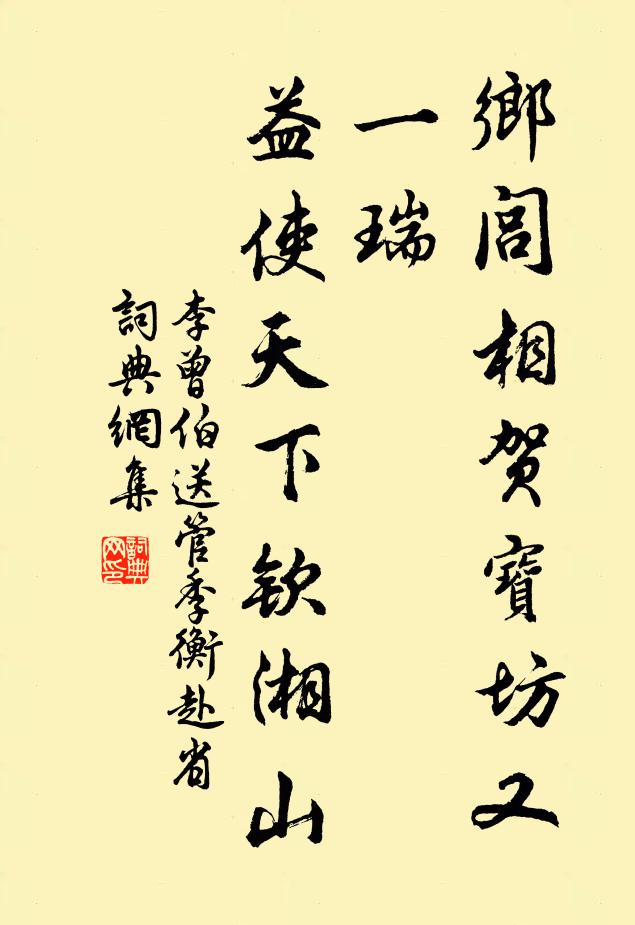 鄉閭相賀寶坊又
一瑞
益使天下欽湘山
李曾伯送管季衡赴省
詞典網集
詞典
网印